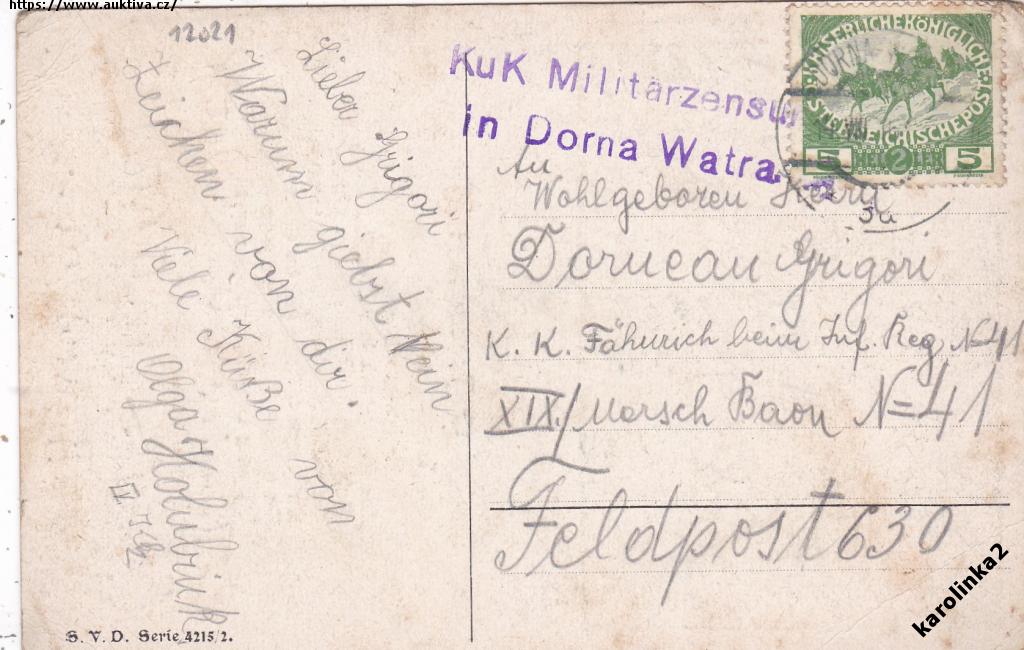 https://www.auktiva.cz/
12021
Lieber Grigori
Warum giebst Kein
Zeichen von dir.
Viele Küße von
Olga
KuK Militärzensur
in Dorna Watra
KAISERLICHE KÖNIGLICHE
ÖSTERREICHISCHE POST
5 HELLER 5
2
DORNA
VIII
An
Wohlgeboren Herrn
Dorucan Grigori
K. K. Fähnrich beim Inf. Reg. N=41
XIX/Marsch Baon N=41
Feldpost 630
S. V. D. Serie 4215/2.
karolinka2